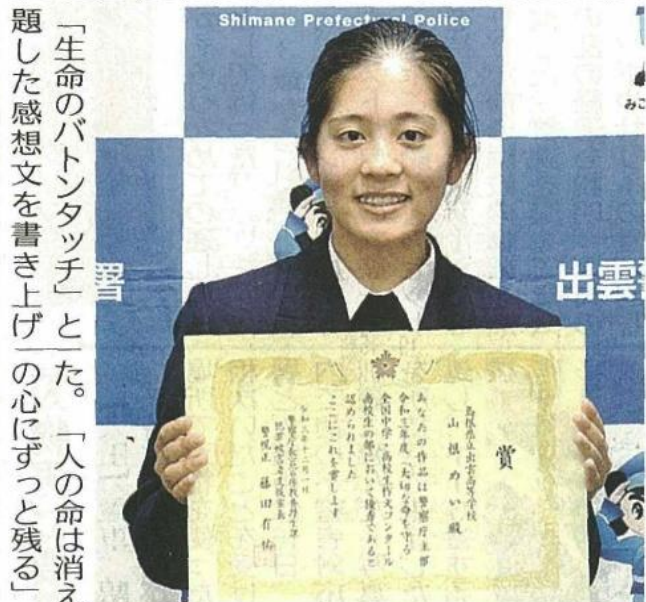 「生命のバトンタッチ」と
題した感想文を書き上げ
た。「人の命は消え
の心にずっと残る」
Shimane Prefectural Police
みこ
署
出雲
賞
島根県立出雲高等学校
山根めい殿
あなたの作品は警察庁主催
令和三年度「大切な命を守る」
全国中学・高校生作文コンクール
高校生の部において優秀であると
認められました
ここにこれを賞します
令和三年十二月一日
警視正 藤田有祐